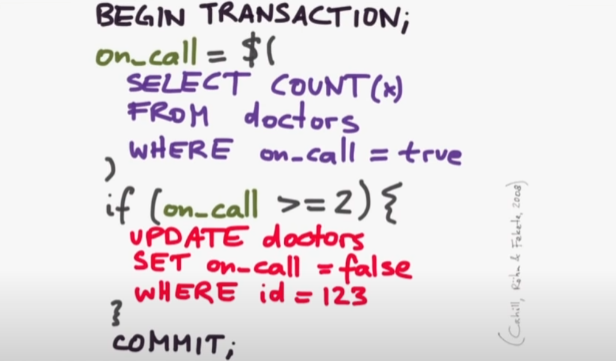 BEGIN TRANSACTION;
on_call = $(
SELECT COUNT(*)
FROM doctors
WHERE on_call = true
)
if (on_call >= 2) {
UPDATE doctors
SET on_call = false
WHERE id = 123
}
COMMIT;
(Cahill, Röhm & Fekete, 2008)